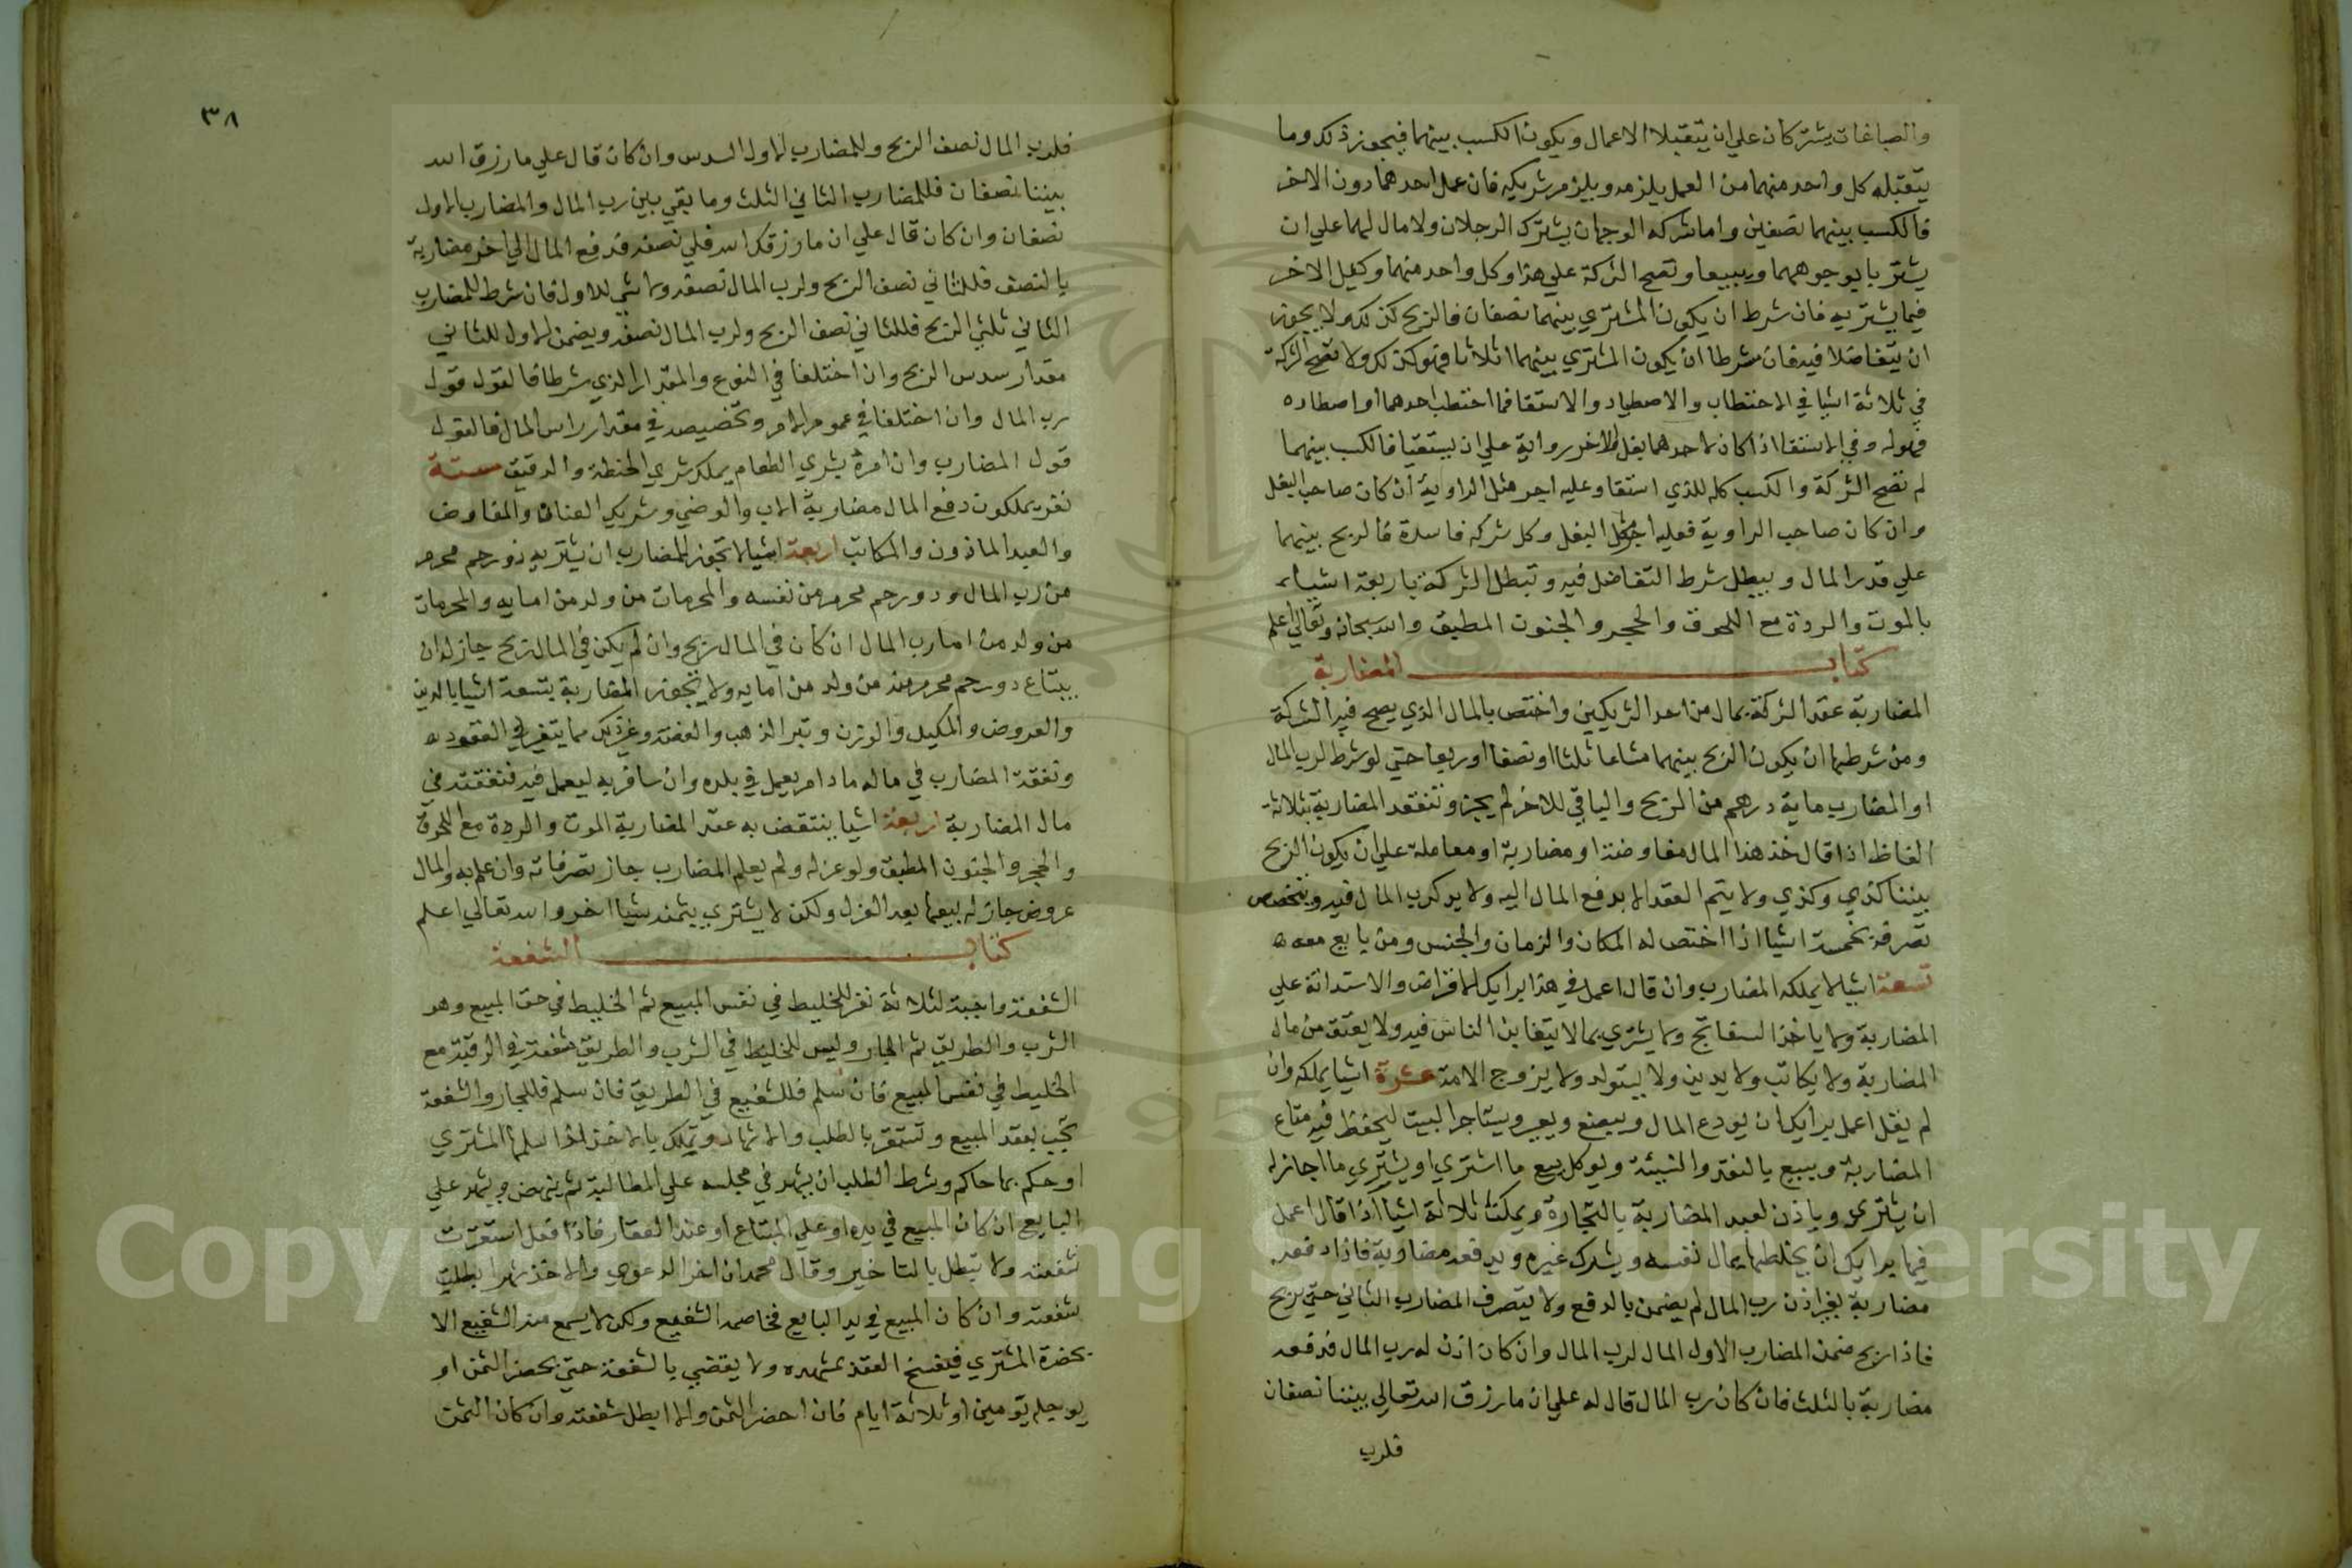 والصباغات يشتركان علي ان يتقبلا الاعمال ويكون الكسب بينهما فيجوز ذلك وما
يتقبله كل واحد منهما من العمل يلزمه ويلزم شريكه فان عمل احدهما دون الاخر
فالكسب بينهما نصفين واما شركه الوجوه ان يشترك الرجلان ولا مال لهما علي ان
يشتريا بوجوههما ويبيعا وتصح الشركة علي هذا وكل واحد منهما وكيل الاخر
فيما يشتريه فان شرط ان يكون المشتري بينهما نصفان فالربح كذلك ولا يجوز
ان يتفاضلا فيه فان شرطا ان يكون المشتري بينهما اثلاثا فهو كذلك ولا تصح الشركة
في ثلاثة اشيا في الاحتطاب والاصطياد والاستقا فما احتطب احدهما او اصطاده
فهو له وفي الاستقا اذا كان لاحدهما بغل وللاخر رواية علي ان يستقيا فالكسب بينهما
لم تصح الشركة والكسب كله للذي استقا وعليه اجر مثل الراوية ان كان صاحب البغل
وان كان صاحب الراوية فعليه اجر مثل البغل وكل شركه فاسدة فالربح بينهما
علي قدر المال ويبطل شرط التفاضل فيه وتبطل الشركة باربعة اشياء
بالموت والردة مع اللحوق والحجر والجنون المطبق والله سبحانه وتعالي اعلم
كتاب المضاربة
المضاربة عقد الشركة بمال من احد الشريكين واختص بالمال الذي يصح فيه الشركة
ومن شرطها ان يكون الربح بينهما مشاعا ثلثا او نصفا او ربعا حتي لو شرط لرب المال
او المضارب ماية درهم من الربح والباقي للاخر لم يجز وتنعقد المضاربة بثلاثة
الفاظ اذا قال خذ هذا المال مفاوضة او مضاربة او معاملة علي ان يكون الربح
بيننا كذي وكذي ولا يتم العقد الا بدفع المال اليه ولا يد لرب المال فيه ويتخصص
تصرفه بخمسة اشيا اذا اختص له المكان والزمان والجنس ومن يبايع معه
تسعة اشيا لا يملكه المضارب وان قال اعمل في هذا برايك الاقراض والاستدانة علي
المضاربة ولا ياخذ السفاتج ولا يشتري بما لا يتغابن الناس فيه ولا يعتق من مال
المضاربة ولا يكاتب ولا يدين ولا يستولد ولا يزوج الامة عشرة اشيا يملكه وان
لم يقل اعمل برايك ان يودع المال ويبضع ويعير ويستاجر البيت ليحفظ فيه متاع
المضاربة ويبيع بالنقد والنسيئة ويوكل ببيع ما اشتري او يشتري ما اجاز له
ان يشتري وياذن لعبد المضاربة بالتجارة ويمكث ثلاثة اشيا اذا قال اعمل
فيها برايك ان يخلطها بمال نفسه ويشرك غيره ويدفعه مضاربة فاذا دفعه
مضاربة بغير اذن رب المال لم يضمن بالدفع ولا يتصرف المضارب الثاني حتي يربح
فاذا ربح ضمن المضارب الاول المال لرب المال وان كان اذن له رب المال فدفعه
مضاربة بالثلث فان كان رب المال قال له علي ان ما رزق الله تعالي بيننا نصفان
فلرب
٣٨
فلرب المال نصف الربح وللمضارب الاول السدس وان كان قال علي ما رزق الله
بيننا نصفان فللمضارب الثاني الثلث وما بقي بين رب المال والمضارب الاول
نصفان وان كان قال علي ان ما رزقك الله فلي نصفه فدفع المال الي اخر مضاربة
بالنصف فللثاني نصف الربح ولرب المال نصفه ولا شي للاول فان شرط للمضارب
الثاني ثلثي الربح فللثاني نصف الربح ولرب المال نصفه ويضمن الاول للثاني
مقدار سدس الربح وان اختلفا في النوع والمقدار الذي شرطا فالقول قول
رب المال وان اختلفا في عموم الامر وتخصيصه في مقدار راس المال فالقول
قول المضارب وان امره بشري الطعام يملك شري الحنطة والدقيق ستة
نفر يملكون دفع المال مضاربة الاب والوصي وشريكي العنان والمفاوض
والعبد الماذون والمكاتب اربعة اشيا لا تجوز للمضارب ان يشتريه ذو رحم محرم
من رب المال وذو رحم محرم من نفسه والمحرمات من ولد من امايه والمحرمات
من ولد من اما رب المال ان كان في المال ربح وان لم يكن في المال ربح جاز له ان
يبتاع ذو رحم محرم منه من ولد من امايه ولا تجوز المضاربة بتسعة اشيا بالدين
والعروض والمكيل والوزن وتبر الذهب والفضة وغير ذلك مما يتغير في العقود
ونفقة المضارب في ماله ما دام يعمل في بلده وان سافر به ليعمل فيه فنفقته في
مال المضاربة اربعة اشيا ينتقض به عقد المضاربة الموت والردة مع اللحوق
والحجر والجنون المطبق ولو عزله ولم يعلم المضارب جاز تصرفاته وان علم به والمال
عروض جاز له بيعها بعد العزل ولكن لا يشتري بثمنه شيا اخر والله تعالي اعلم
كتاب الشفعة
الشفعة واجبة لثلاثة نفر للخليط في نفس المبيع ثم الخليط في حق المبيع وهو
الشرب والطريق ثم الجار وليس للخليط في الشرب والطريق شفعة في الرقبة مع
الخليط في نفس المبيع فان سلم فللشفيع في الطريق فان سلم فللجار والشفعة
تجب بعقد المبيع وتستقر بالطلب والاشهاد وتملك بالاخذ اذا سلمها المشتري
او حكم بها حاكم وشرط الطلب ان يشهد في مجلسه علي المطالبة ثم ينهض ويشهد علي
البايع ان كان المبيع في يده او علي المبتاع او عند العقار فاذا فعل استقرت
شفعته ولا تبطل بالتاخير وقال محمد ان اخر الدعوي والاخذ شهرا بطلت
شفعته وان كان المبيع في يد البايع فخاصمه الشفيع ولكن لا يسمع من الشفيع الا
بحضرة المشتري فيفسخ العقد بمشهده ولا يقضي بالشفعة حتي يحضر الثمن او
يوجله يومين او ثلاثة ايام فان احضر الثمن والا ابطل شفعته وان كان الثمن
Copyright © King Saud University